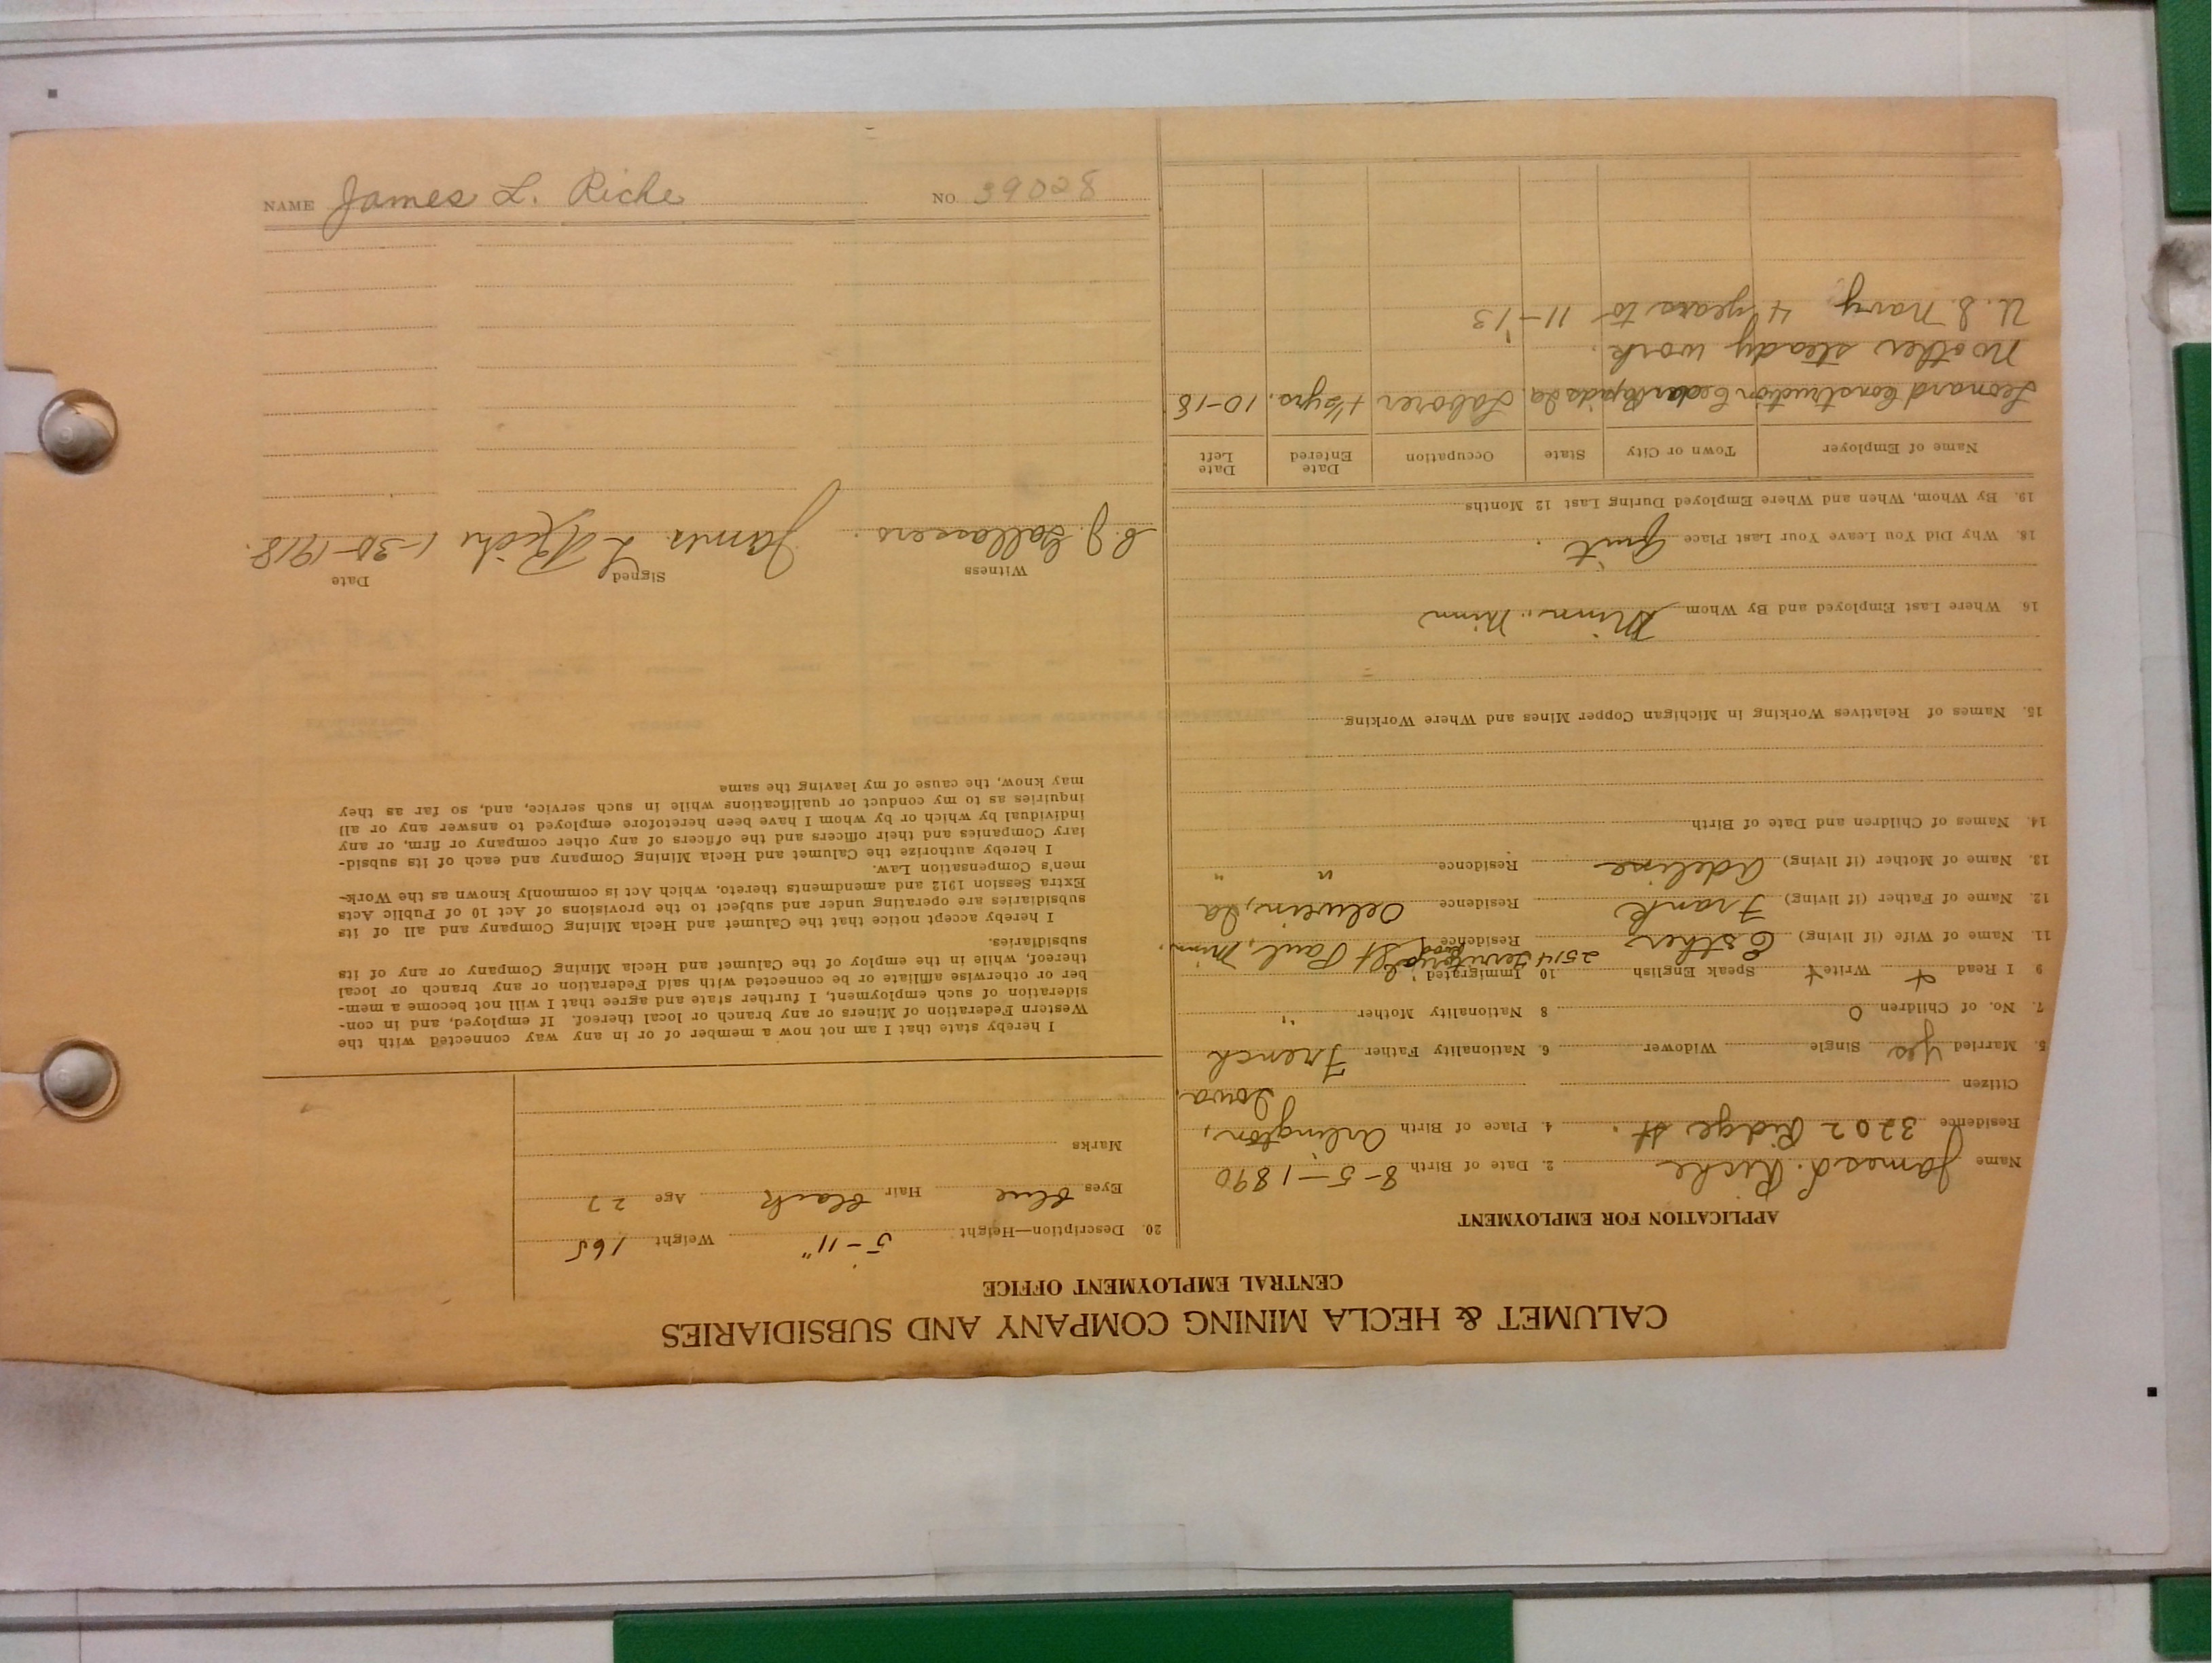 CALUMET & HECLA MINING COMPANY AND SUBSIDIARIES
CENTRAL EMPLOYMENT OFFICE
APPLICATION FOR EMPLOYMENT
Name James L. Riche 2. Date of Birth 8-5-1890
Residence 3202 Ridge St. 4. Place of Birth Arlington,
Iowa.
Citizen
5. Married Yes Single Widower 6. Nationality Father French
7. No. of Children 0 8 Nationality Mother "
9 I Read + Write + Speak English 10 Immigrated
2514 Territorial Road
11. Name of Wife (if living) Esther Residence St Paul, Minn.
12. Name of Father (if living) Frank Residence Oelwein, Ia
13. Name of Mother (if living) Adeline Residence " "
14. Names of Children and Date of Birth
15. Names of Relatives Working in Michigan Copper Mines and Where Working
16. Where Last Employed and By Whom Minn., Minn
18. Why Did You Leave Your Last Place Quit.
19. By Whom, When and Where Employed During Last 12 Months
Name of Employer Town or City State Occupation Date Entered Date Left
Leonard Construction Cedar Rapids Ia. Laborer 1½ yrs. 10-18
No other steady work.
U.S. Navy 4 years to 11-13
20. Description—Height 5-11" Weight 165
Eyes blue Hair black Age 27
Marks
I hereby state that I am not now a member of or in any way connected with the
Western Federation of Miners or any branch or local thereof. If employed, and in con-
sideration of such employment, I further state and agree that I will not become a mem-
ber or otherwise affiliate or be connected with said Federation or any branch or local
thereof, while in the employ of the Calumet and Hecla Mining Company or any of its
subsidiaries.
I hereby accept notice that the Calumet and Hecla Mining Company and all of its
subsidiaries are operating under and subject to the provisions of Act 10 of Public Acts
Extra Session 1912 and amendments thereto, which Act is commonly known as the Work-
men's Compensation Law.
I hereby authorize the Calumet and Hecla Mining Company and each of its subsid-
iary Companies and their officers and the officers of any other company or firm, or any
individual by which or by whom I have been heretofore employed to answer any or all
inquiries as to my conduct or qualifications while in such service, and, so far as they
may know, the cause of my leaving the same
Witness Signed Date
James L Riche 1-30-1918.
NAME James L. Riche NO. 39028